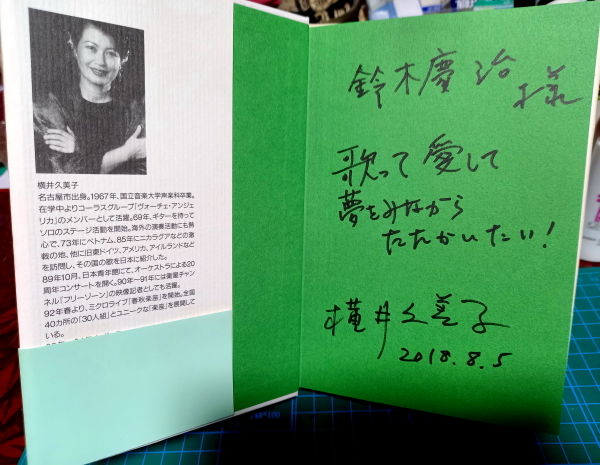 横井久美子
名古屋市出身。1967年、国立音楽大学声楽科卒業。
在学中よりコーラスグループ「ヴォーチェ・アンジェ
リカ」のメンバーとして活躍。69年、ギターを持って
ソロのステージ活動を開始。海外の演奏活動にも熱
心で、73年にベトナム、85年にニカラグアなどの激
戦の地、他に旧東ドイツ、アメリカ、アイルランドなど
を訪問し、その国の歌を日本に紹介した。
89年10月、日本青年館にて、オーケストラによる20
周年コンサートを開く。90年〜91年には衛星チャン
ネル「フリーゾーン」の映像記者としても活躍。
92年春より、ミクロライブ「春秋楽座」を開始。全国
40カ所の「30人組」とユニークな「楽座」を展開して
いる。
鈴木慶治様
歌って愛して
夢をみながら
たたかいたい!
横井久美子
2018.8.5